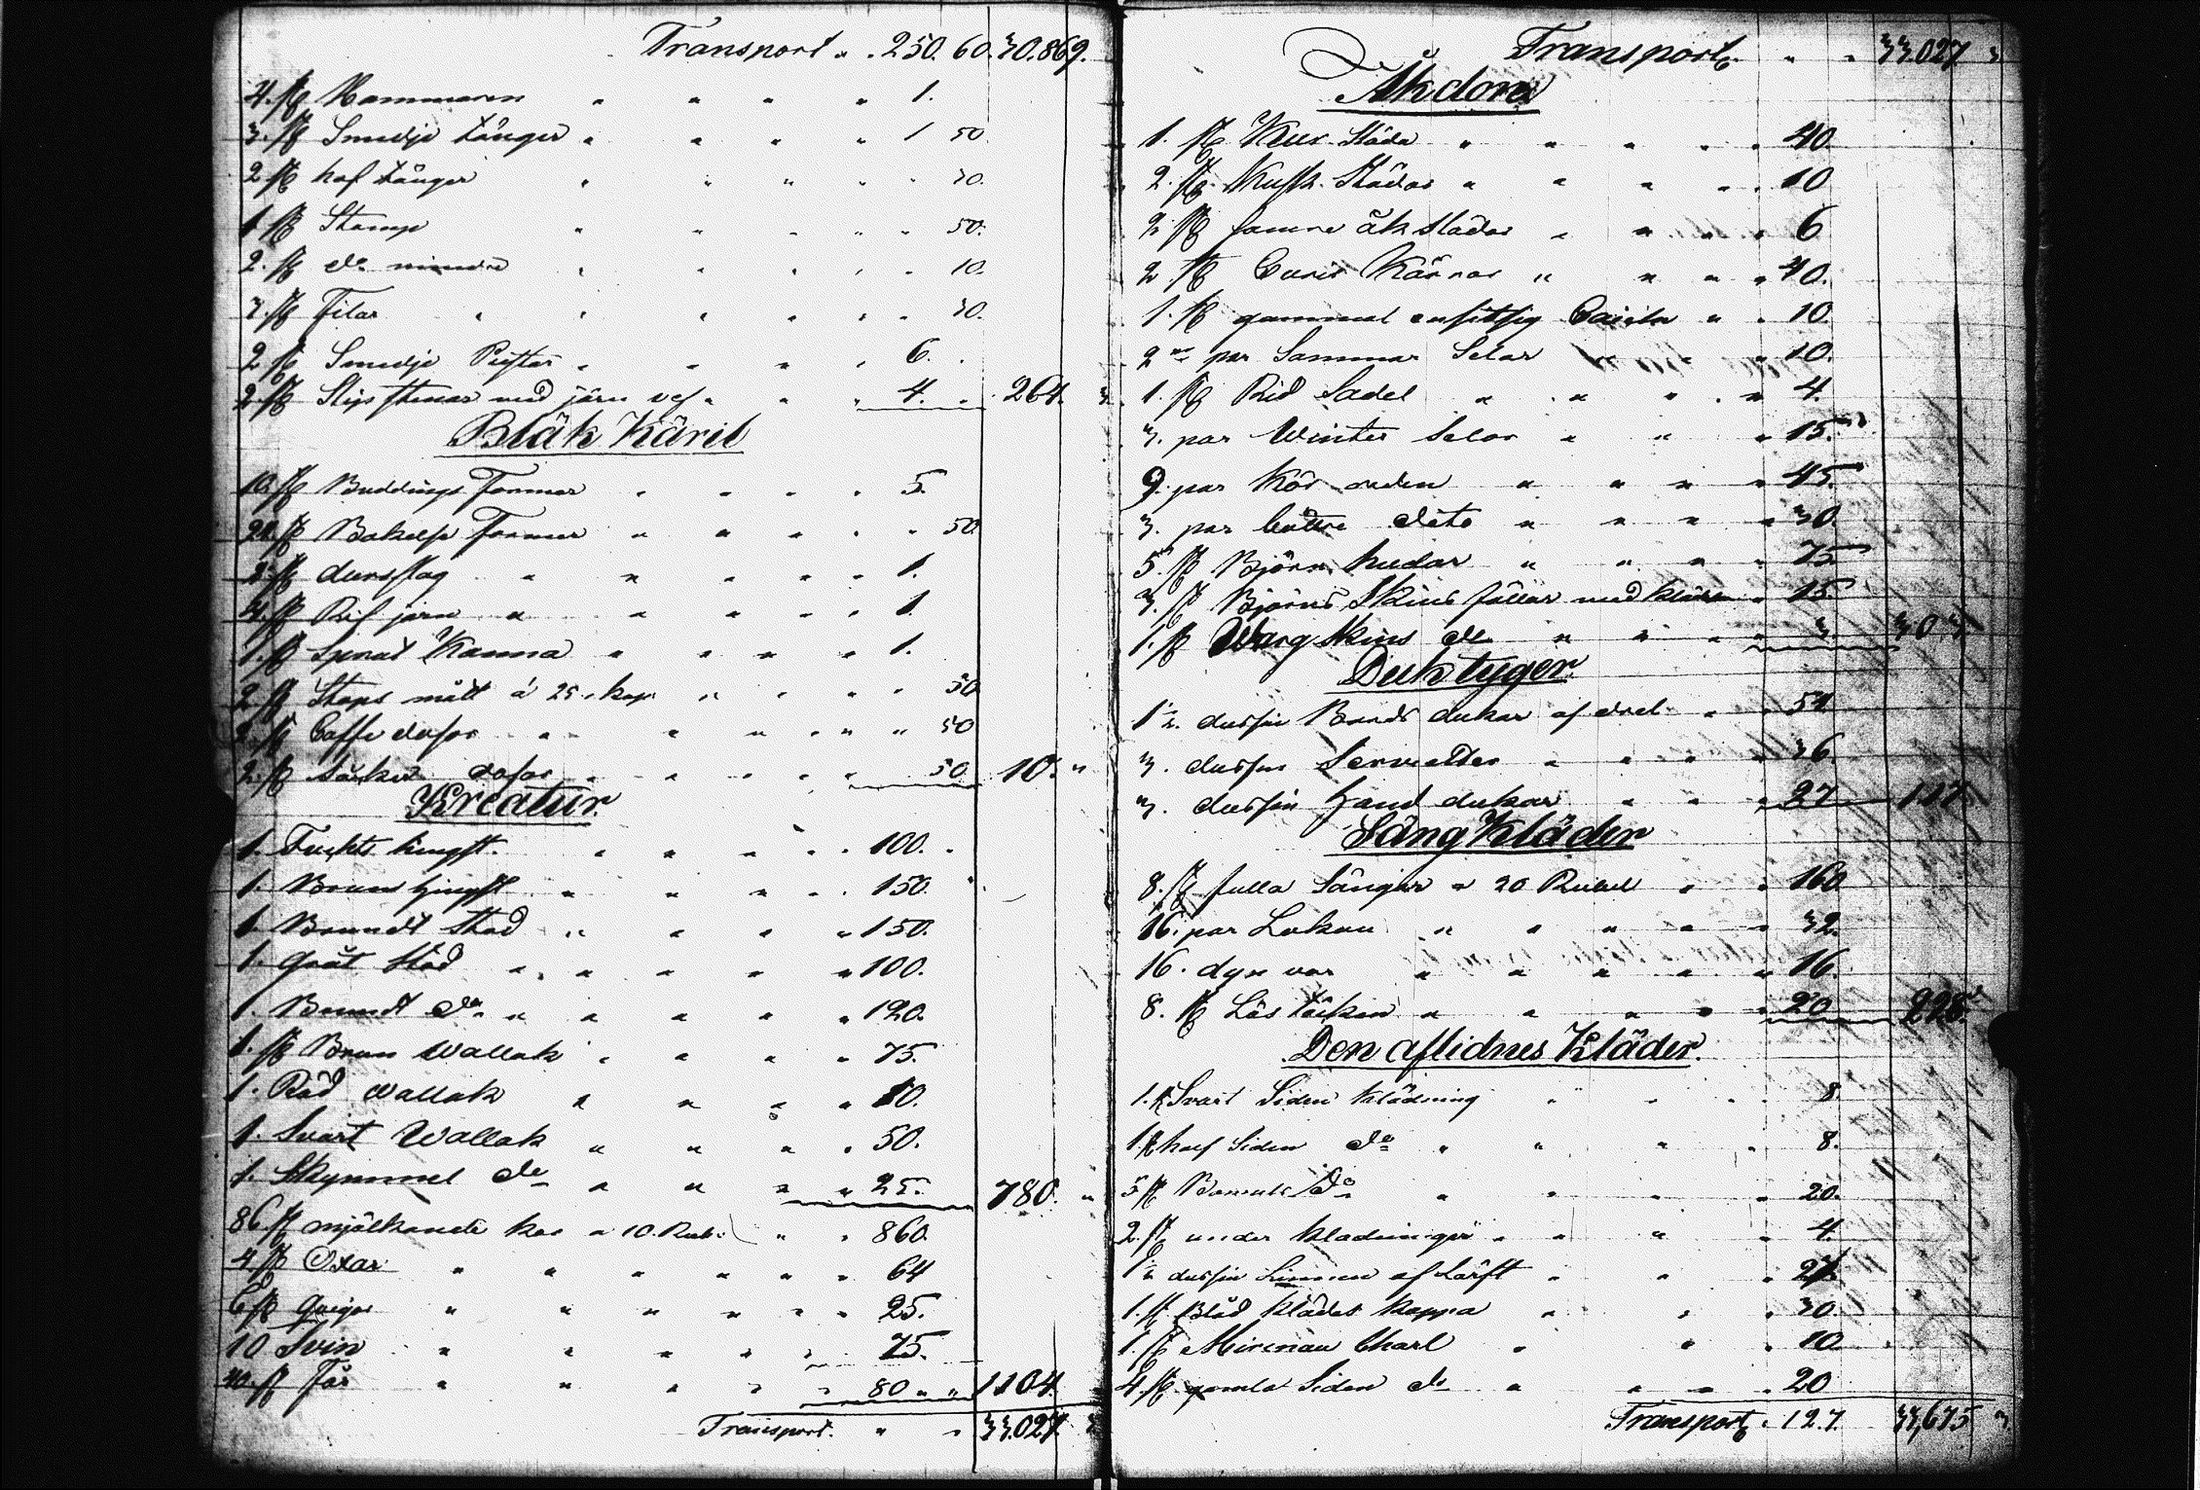 Transport " " 250. 60. 30.869.
4. st Hammaren " " " " 1.
3. st Smedje tänger " " " " 1 50
2. st hof tänger " " " " " 30.
1 st Stamp " " " " " 50.
2. st do mindre " " " " " 10.
3. st Filar " " " " " 30.
2 st Smedje Pustar " " " " 6. "
2. st Slipstenar med järn vef " " " 4. " 264. 3
Bläk Käril
10. st Puddings Formar " " " " 5.
24. st Bakelse Former " " " " " 50
2. st durslag " " " " " 1.
4. st Rif järn " " " " " 1.
1. st Sprut Kanna " " " " " 1.
2 st Stops mått á 25. kop. " " " " 50
2. st Caffe dosor " " " " " " 50
2. st Såcker dosor " " " " " 50 10. "
Kreatur.
1. Fuchs hingst. " " " " " 100. "
1. Brun hingst " " " " " 150. "
1. Brundt Stod " " " " 150.
1. Gråt Stod " " " " " 100.
1. Brundt do " " " " " 120.
1. st Brun Wallak " " " " 75.
1. Röd Wallak " " " " 10.
1. Svart Wallak " " " " 50.
1. Skymmel do " " " " 25. 780. "
86. st mjölkande kor a 10. Rub. " " 860.
4. st Oxar " " " " " " 64
6 st Qvigor " " " " " 25.
10 Svin " " " " " 75.
40. st Får " " " " " 80 " " 1104.
Transport. " " 33.027. 3
Transport. " " 33.027 3
Åkdon
1. st Kur Släda " " " " " 40.
2. st Kusk Slädor " " " " " 10
2 st samre åk slädor " " " " 6
2 st Curir Kärror " " " " 40.
1. st gammal ensitsig Caisla " " 10.
2ne par Sommar Selar " " " 10.
1. st Rid Sadel " " " " 4.
3. par Winter Selar " " " 15.
9. par Kör " " " " 45.
3. par bättre dito " " " " 30.
5 st Björn hudar " " " " 75.
3. st Björns Skins fällar med kläde " 15
1. st Warg skins do " " " " 3. 303
Duktyger.
1 1/2 dussin Bords dukar af drel " " 54
3. dussin Servetter " " " " 36.
3. dussin Hand dukar " " " 27 117
Säng Kläder
8. st fulla Sängar a 20 Rubel " " 160
16. par Lakan " " " " " 32.
16. dyn var " " " " " 16.
8. st Lös täcken " " " " " 20 228.
Den aflidnes Kläder.
1. st Svart Siden klädning " " " 8
1 st half Siden do " " " " 8.
5 st Bomuls do " " " " 20.
2. st under kladningar " " " " 4.
1/2 dussin Linnen af Lärft " " " 27.
1. st Blåd klädes kappa " " " 30.
1. st Mirenau Charl " " " 10
4. st gamla Siden do " " " " 20
Transport " 127. 33,675 3